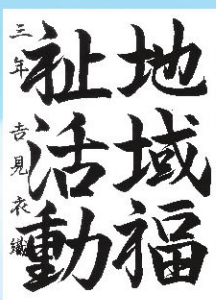 地域福
祉活動
三年 吉見衣織